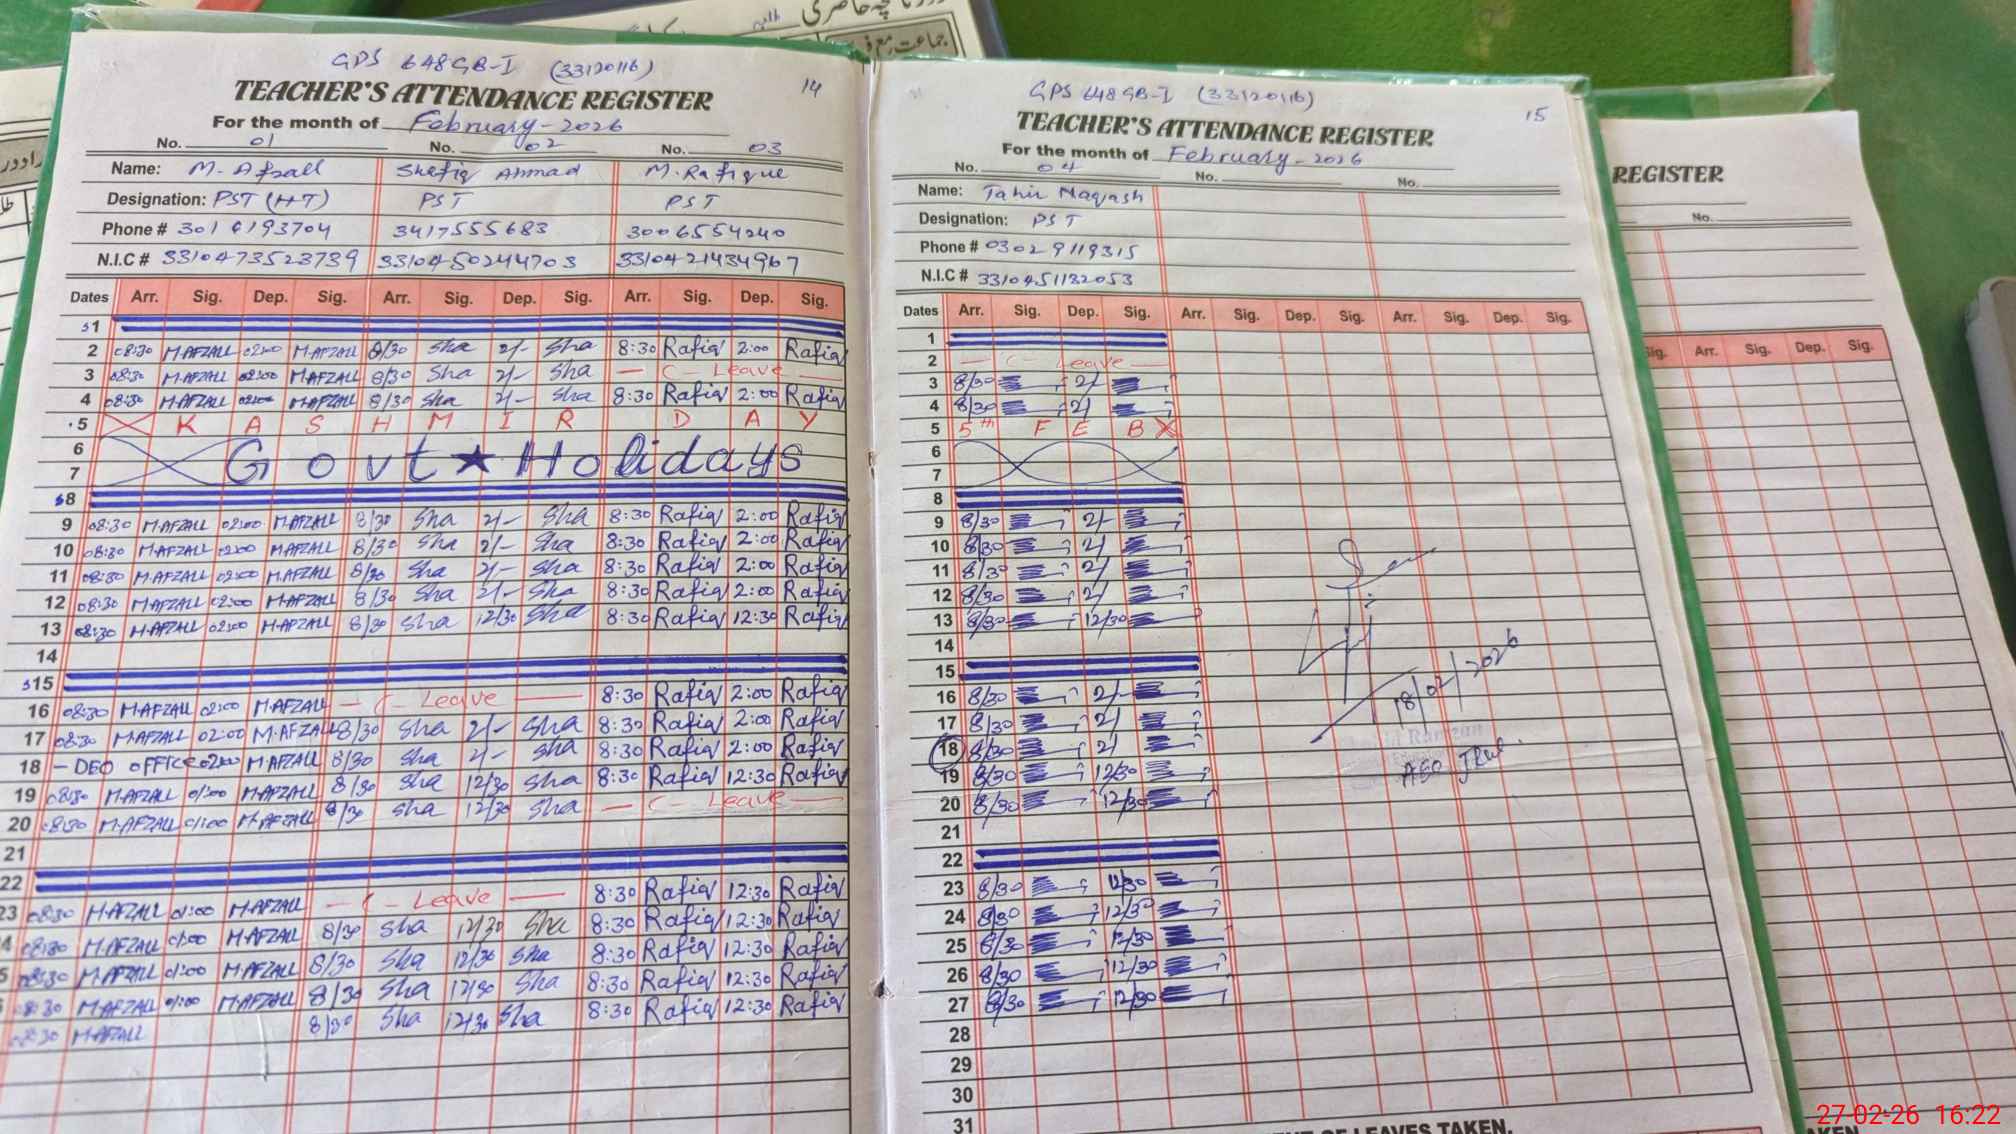 GPS 648GB-I (33120116)
14
TEACHER'S ATTENDANCE REGISTER
For the month of February-2026
No. 01 No. 02 No. 03
Name: M. Afzall Shafiq Ahmad M. Rafique
Designation: PST (HT) PST PST
Phone # 3016193704 3417555683 3006554240
N.I.C # 3310473523739 3310450244703 3310421434967
Dates Arr. Sig. Dep. Sig. Arr. Sig. Dep. Sig. Arr. Sig. Dep. Sig.
S1
2 08:30 M.AFZALL 02:00 M.AFZALL 8/30 Sha 2/- Sha 8:30 Rafiq 2:00 Rafiq
3 08:30 M.AFZALL 02:00 M.AFZALL 8/30 Sha 2/- Sha — C — Leave —
4 08:30 M.AFZALL 02:00 M.AFZALL 8/30 Sha 2/- Sha 8:30 Rafiq 2:00 Rafiq
5 K A S H M I R D A Y
6
7 Govt ★ Holidays
S8
9 08:30 M.AFZALL 02:00 M.AFZALL 8/30 Sha 2/- Sha 8:30 Rafiq 2:00 Rafiq
10 08:30 M.AFZALL 02:00 M.AFZALL 8/30 Sha 2/- Sha 8:30 Rafiq 2:00 Rafiq
11 08:30 M.AFZALL 02:00 M.AFZALL 8/30 Sha 2/- Sha 8:30 Rafiq 2:00 Rafiq
12 08:30 M.AFZALL 02:00 M.AFZALL 8/30 Sha 2/- Sha 8:30 Rafiq 2:00 Rafiq
13 08:30 M.AFZALL 02:00 M.AFZALL 8/30 Sha 12/30 Sha 8:30 Rafiq 12:30 Rafiq
14
S15
16 08:30 M.AFZALL 02:00 M.AFZALL — C — Leave — 8:30 Rafiq 2:00 Rafiq
17 08:30 M.AFZALL 02:00 M.AFZALL 8/30 Sha 2/- Sha 8:30 Rafiq 2:00 Rafiq
18 — DEO OFFICE 02:00 M.AFZALL 8/30 Sha 2/- Sha 8:30 Rafiq 2:00 Rafiq
19 08:30 M.AFZALL 01:00 M.AFZALL 8/30 Sha 12/30 Sha 8:30 Rafiq 12:30 Rafiq
20 08:30 M.AFZALL 01:00 M.AFZALL 8/30 Sha 12/30 Sha — C — Leave —
21
22
23 08:30 M.AFZALL 01:00 M.AFZALL — C — Leave — 8:30 Rafiq 12:30 Rafiq
4 08:30 M.AFZALL 01:00 M.AFZALL 8/30 Sha 12/30 Sha 8:30 Rafiq 12:30 Rafiq
5 08:30 M.AFZALL 01:00 M.AFZALL 8/30 Sha 12/30 Sha 8:30 Rafiq 12:30 Rafiq
08:30 M.AFZALL 01:00 M.AFZALL 8/30 Sha 12/30 Sha 8:30 Rafiq 12:30 Rafiq
08:30 M.AFZALL 8/30 Sha 12/30 Sha 8:30 Rafiq 12:30 Rafiq
GPS 648GB-I (33120116)
15
TEACHER'S ATTENDANCE REGISTER
For the month of February-2026
No. 04 No. No.
Name: Tahir Naqash
Designation: PST
Phone # 03029119315
N.I.C # 3310451132053
Dates Arr. Sig. Dep. Sig. Arr. Sig. Dep. Sig. Arr. Sig. Dep. Sig.
1
2 — C — Leave —
3 8/30 2/
4 8/30 2/
5 5th F E B
6
7
8
9 8/30 2/-
10 8/30 2/
11 8/30 2/
12 8/30 2/
13 8/30 12/30
14
15
16 8/30 2/-
17 8/30 2/
18 8/30 2/
19 8/30 12/30
20 8/30 12/30
21
22
23 8/30 12/30
24 8/30 12/30
25 8/30 12/30
26 8/30 12/30
27 8/30 12/30
28
29
30
31
18/02/2026
Ramzan
AEO
OF LEAVES TAKEN.
REGISTER
No.
Sig. Arr. Sig. Dep. Sig.
AKEN
27-02-26 16:22